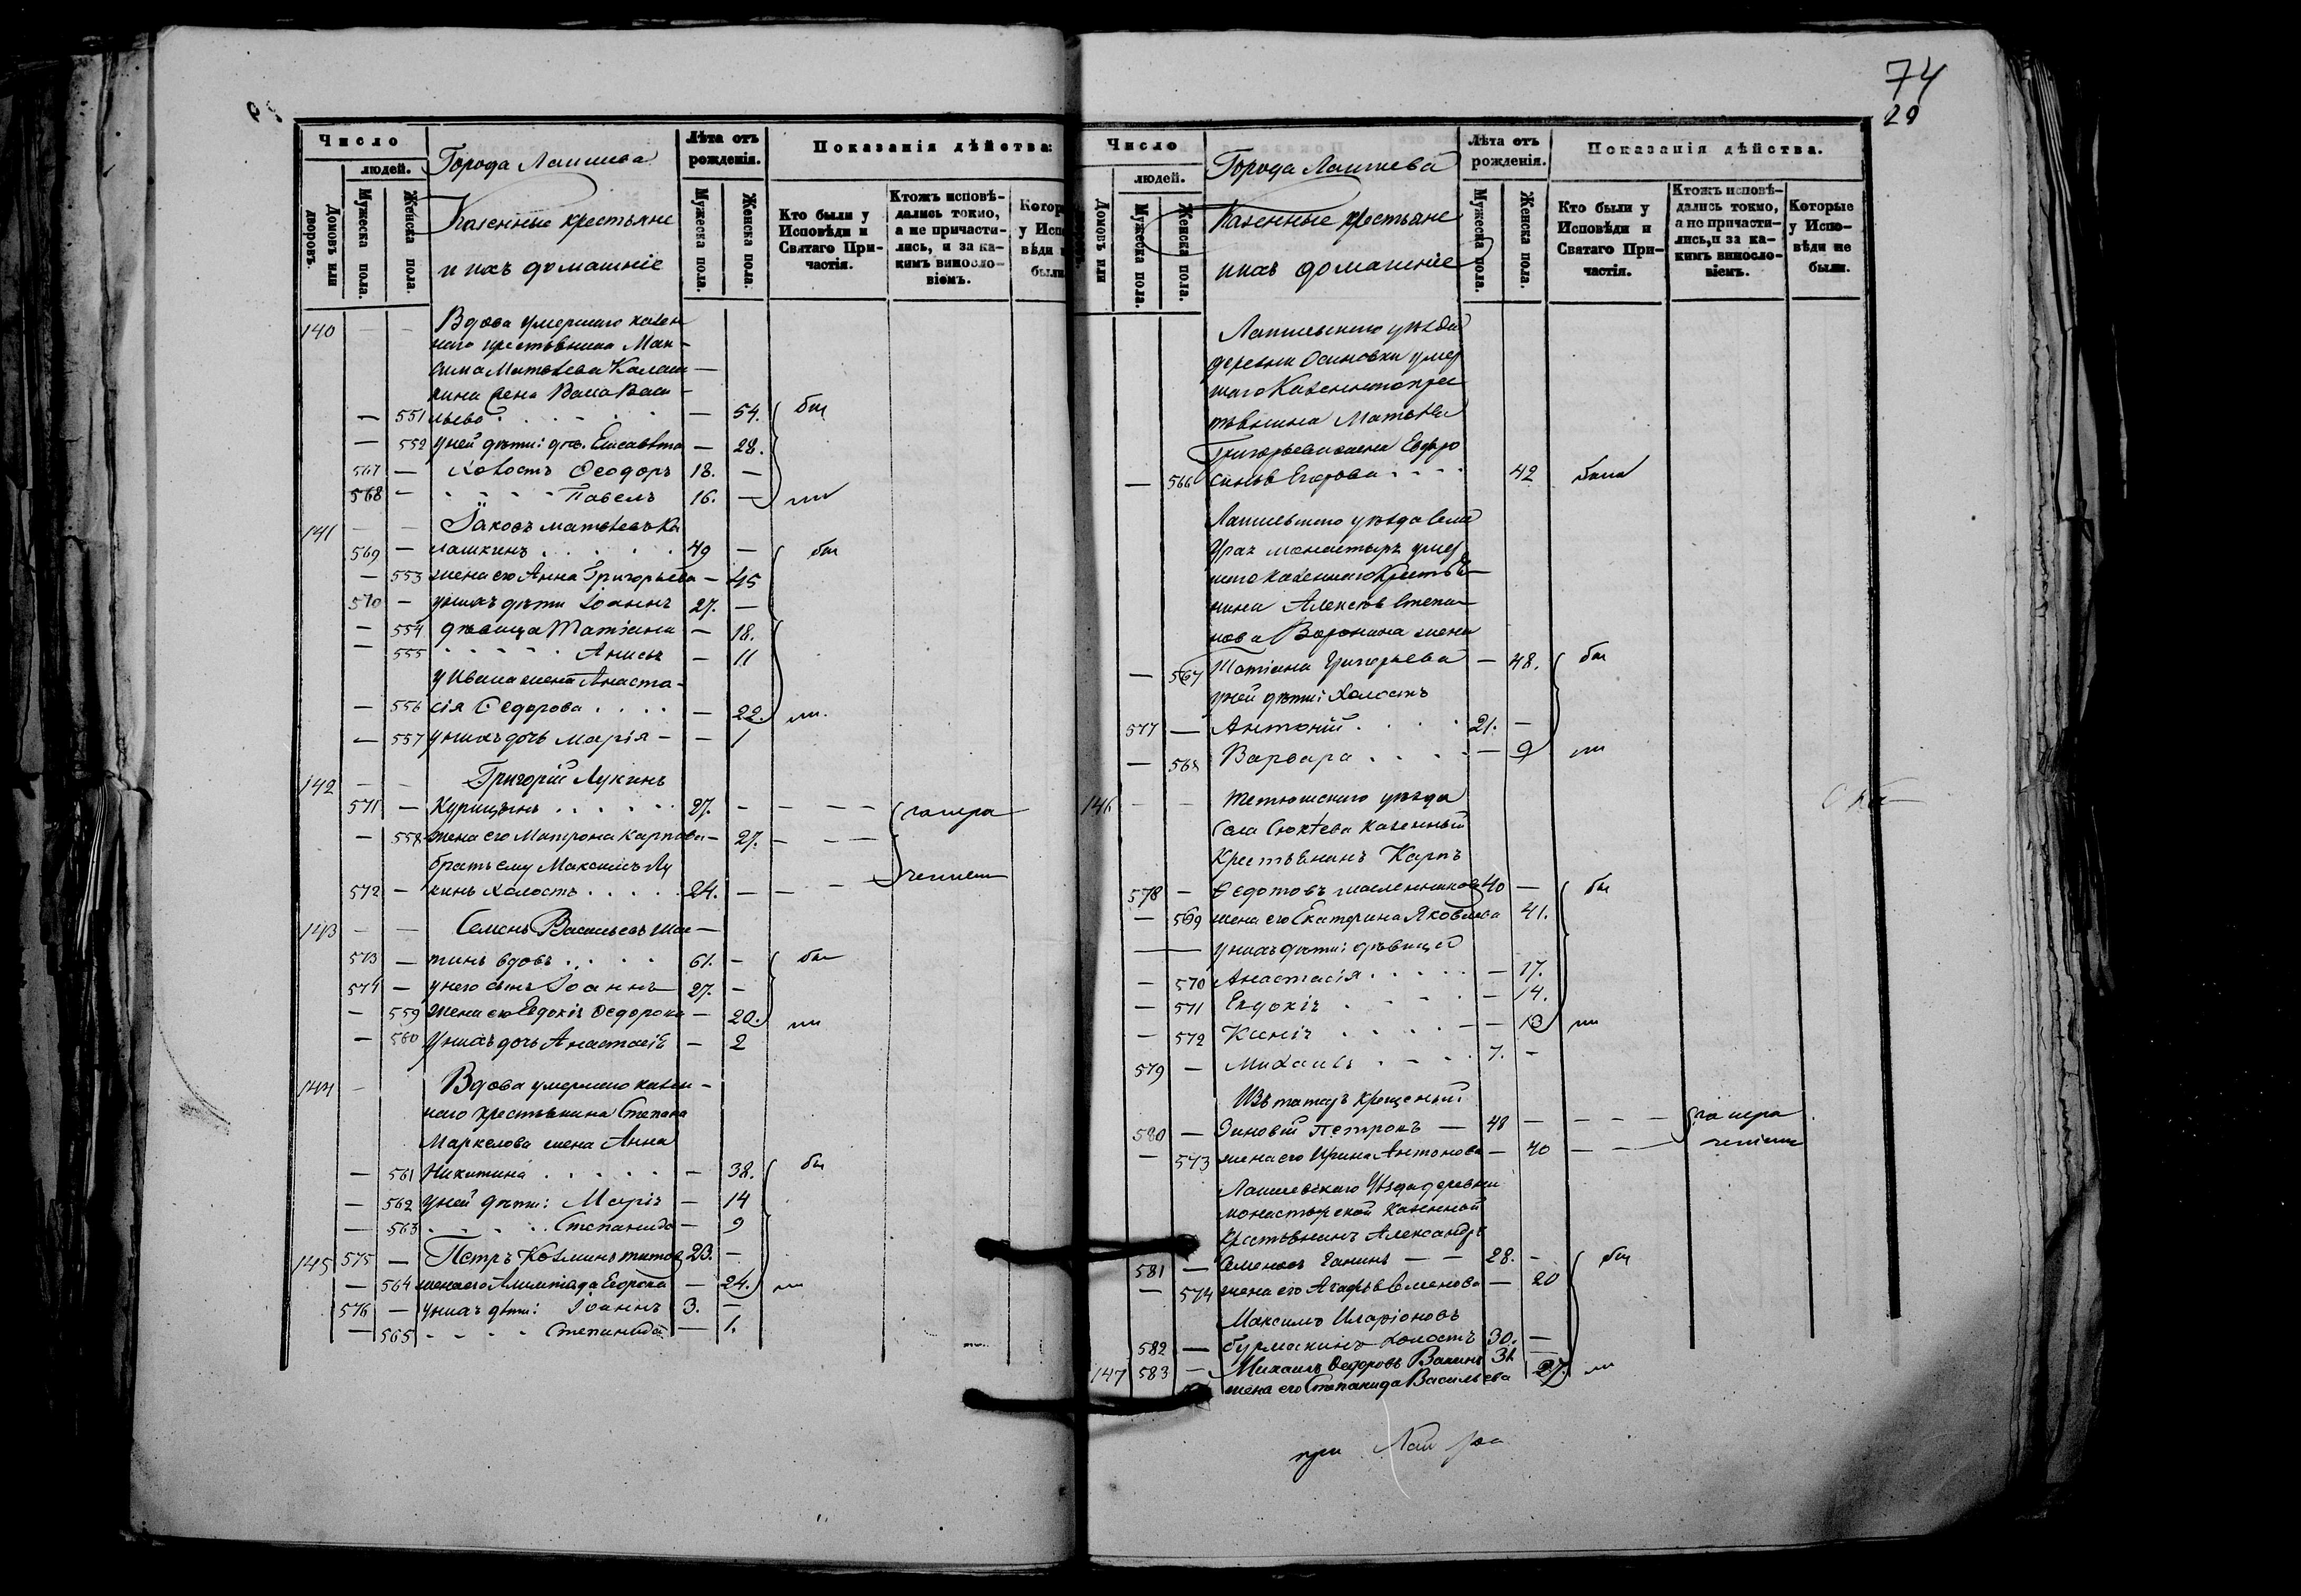 74
29
Число
людей.
Домовъ или дворовъ.
Мужеска пола.
Женска пола.
Города Лаишева
Казенные крестьяне
и ихъ домашніе
Лѣта отъ рожденія.
Мужеска пола.
Женска пола.
Показанія дѣйства:
Кто были у Исповѣди и Святаго Причастія.
Ктожъ исповѣдались токмо, а не причастились, и за какимъ винословіемъ.
140 — — Вдова умершаго казен
наго крестьянина Мак-
сима Матвѣева Калаш-
кина жена Васса Васи-
— 551 льева — 54. бы
— 552 у ней дѣти: дѣв. Елисавета — 28.
567 — Холостъ Ѳеодоръ 18. —
568 — Павелъ 16. — ли
141 — — Іаковъ Матвѣевъ Ка
569 — лашкинъ 49 — бы
— 553 жена его Анна Григорьева — 45
570 — у нихъ дѣти Іоаннъ 27. —
— 554 дѣвица Татіана — 18.
— 555 Анисья — 11
у Ивана жена Анаста-
— 556 сія Ѳедорова — 22. ли
— 557 у нихъ дочь Марія — 1
142 — — Григорій Лукинъ
571 — Курицынъ 27. — — — за нера
— 558 жена его Матрона Карпова — 27. — — —
братъ ему Максимъ Лу
572 — кинъ холостъ 24. — — — ченіемъ
143 — — Семенъ Васильевъ
573 — вдовъ 61. — бы
574 — у него сынъ Іоаннъ 27. —
— 559 жена его Евдокія Ѳедорова — 20. ли
— 560 у нихъ дочь Анастасія — 2
144 — Вдова умершаго казен-
наго крестьянина Степана
Маркелова жена Анна
— 561 Никитина — 38. бы
— 562 у ней дѣти: Марія — 14
— 563 Степанида — 9
145 575 — Петръ Козминъ Титов 23. —
— 564 жена его Олимпіада Егорова — 24. ли
576 — у нихъ дѣти: Іоаннъ 3. —
— 565 Степанида — 1.
Число
людей.
Домовъ или дворовъ.
Мужеска пола.
Женска пола.
Города Лаишева
Казенные крестьяне
и ихъ домашніе
Лѣта отъ рожденія.
Мужеска пола.
Женска пола.
Показанія дѣйства.
Кто были у Исповѣди и Святаго Причастія.
Ктожъ исповѣдались токмо, а не причастились, и за какимъ винословіемъ.
Которые у Исповѣди не были.
Лаишевскаго уѣзда
деревни Осиновки умер
шаго Казеннаго крес
тьянина Матвѣя
Григорьева жена Евфро
— 566 синья Егорова 42 была
Лаишевскаго уѣзда села
монастырь умер
шаго казеннаго крестья-
нина Алексѣя Степа-
нова Воронина жена
— 567 Татіана Григорьева — 48. бы
у ней дѣти: холостъ
577 — Антоній 21. —
— 568 Варвара — 9 ли
146 — — Тетюшскаго уѣзда
Села Сюкѣева казенный
Крестьянинъ Карпъ
578 — Ѳедотовъ Масленниковъ 40 — бы
— 569 жена его Екатерина Яковлева 41.
— — у нихъ дѣти: дѣвица
— 570 Анастасія — 17.
— 571 Евдокія — 14.
— 572 Ксенія — 13 ли
579 — Михаилъ 7. —
Изъ татаръ крещеный
580 — Зиновій Петровъ — 48 — — — за нера
— 573 жена его Ирина Антонова — 40 — — ченіемъ
Лаишевскаго уѣзда деревни
монастырской Казенной
Крестьянинъ Александръ
581 — Семеновъ Ганинъ — — 28. — бы
— 574 жена его Агафья Семенова — 20
Максимъ Иларіоновъ
582 — Бурмакинъ холостъ 30. —
147 583 — Михаилъ Ѳедоровъ 31 —
жена его Степанида Васильева 27. ли
при